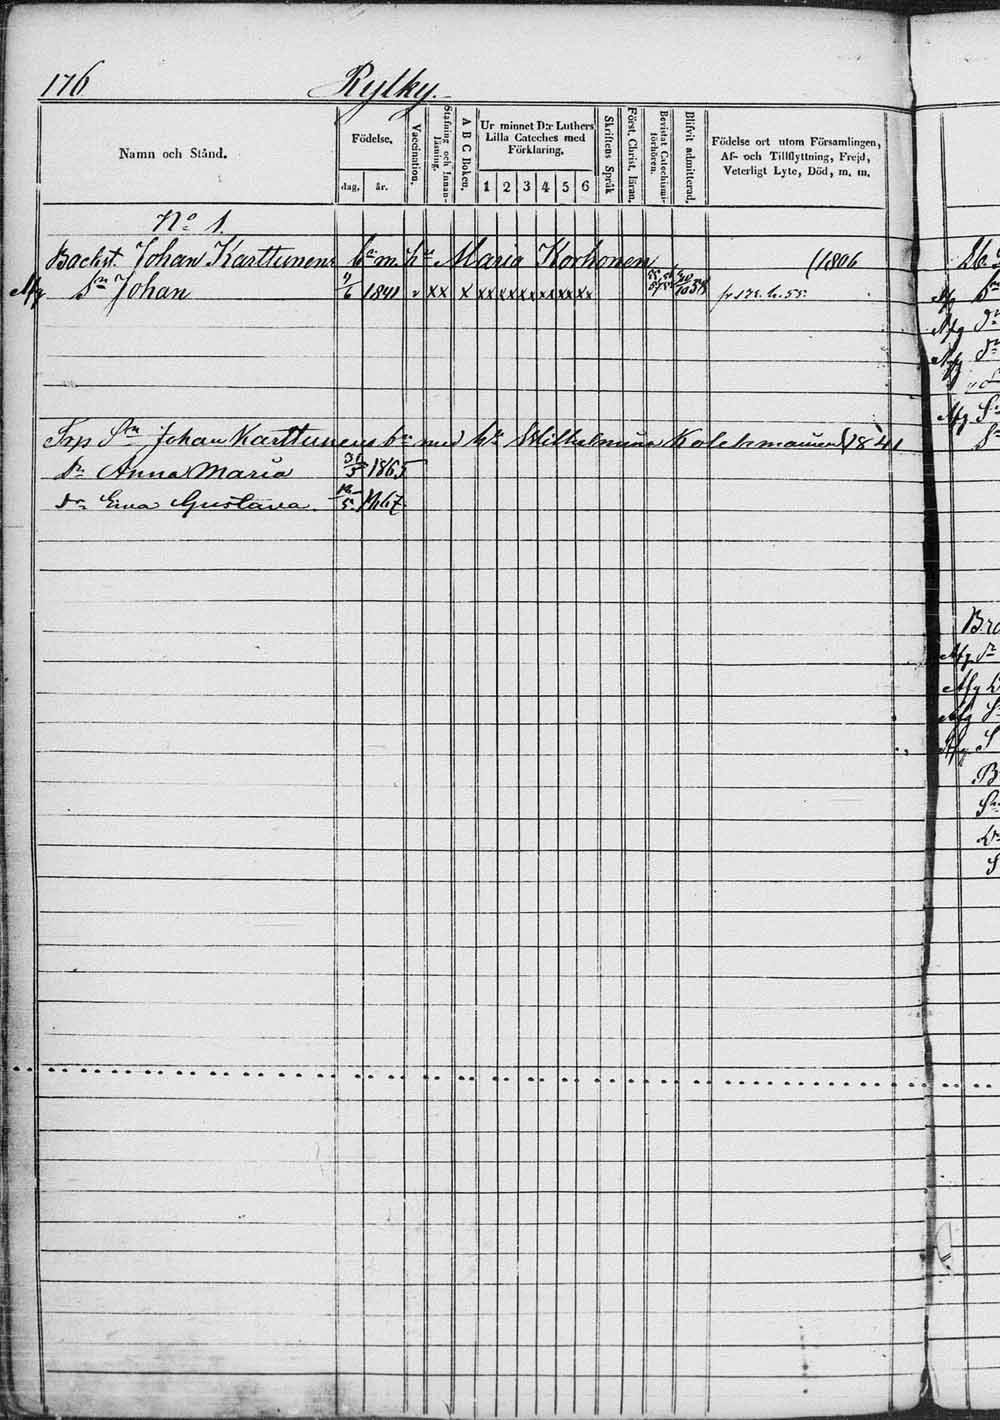 176 Rylky.
Namn och Stånd.
Födelse.
dag. år.
Vaccination.
Stafning och Innanläsning.
A B C Boken.
Ur minnet D:r Luthers Lilla Cateches med Förklaring.
1 2 3 4 5 6
Skriftens Språk
Först. Christ. läran.
Bevistat Catechismiförhören.
Blifvit admitterad.
Födelse ort utom Församlingen, Af- och Tillflyttning, Frejd, Veterligt Lyte, Död, m. m.
No 1.
Backst. Johan Karttunens bn m. hu Maria Korhonen (1806
Afg Sn Johan 1841 v xx x xx xx xx xx xx xx fr 178. h. 55.
Trp Sn Johan Karttunens bn med hu Wilhelmina Kolehmainen (1841
dr Anna Maria 1865
dr Ewa Gustava. 1867.